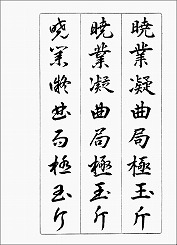 曉業凝曲局極玉斤
曉業凝曲局極玉斤
曉業凝曲局極玉斤